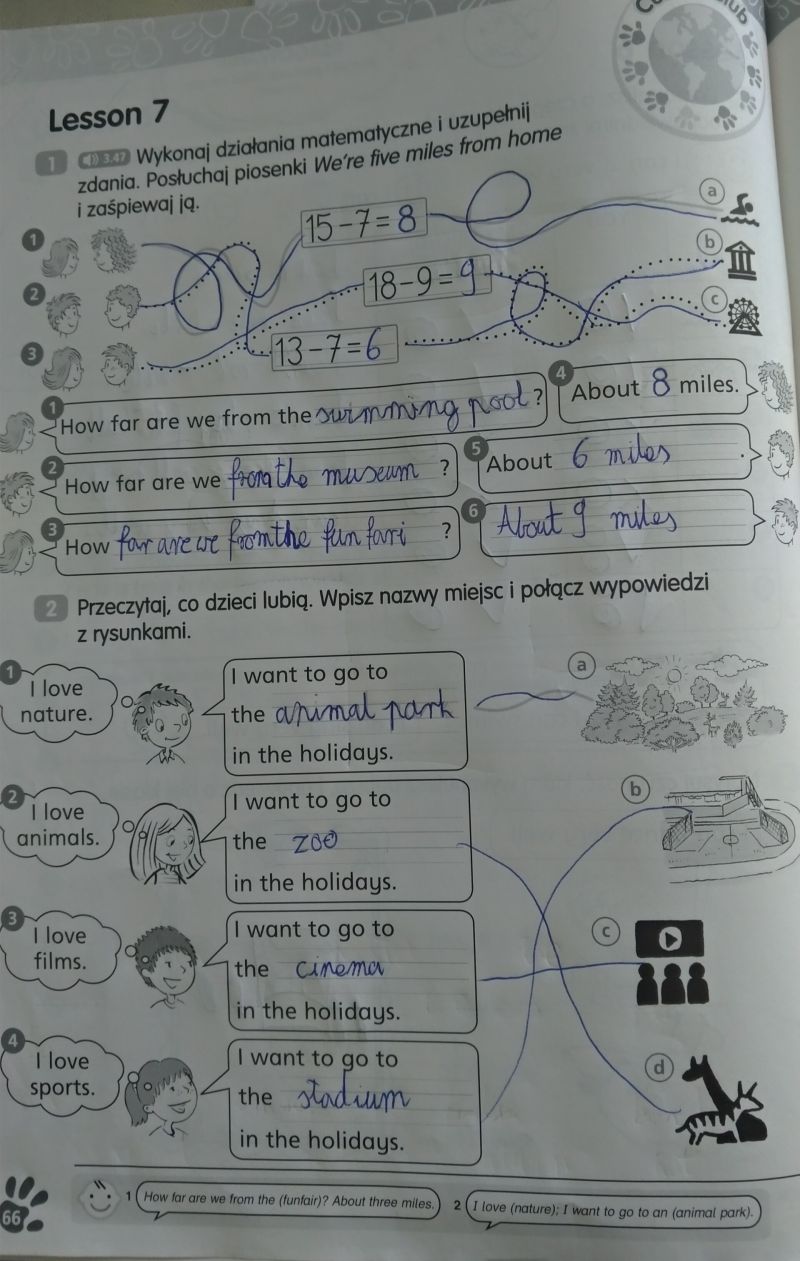 Lesson 7
1 3.47 Wykonaj działania matematyczne i uzupełnij
zdania. Posłuchaj piosenki We're five miles from home
i zaśpiewaj ją.
15-7=8
18-9=9
13-7=6
1
2
3
a
b
c
1 How far are we from the swimming pool?
4 About 8 miles.
2 How far are we from the museum ?
5 About 6 miles .
3 How far are we from the fun fari ?
6 About 9 miles
2 Przeczytaj, co dzieci lubią. Wpisz nazwy miejsc i połącz wypowiedzi
z rysunkami.
1 I love
nature.
I want to go to
the animal park
in the holidays.
a
2 I love
animals.
I want to go to
the zoo
in the holidays.
b
3 I love
films.
I want to go to
the cinema
in the holidays.
c
4 I love
sports.
I want to go to
the stadium
in the holidays.
d
66
1 How far are we from the (funfair)? About three miles.
2 I love (nature); I want to go to an (animal park).